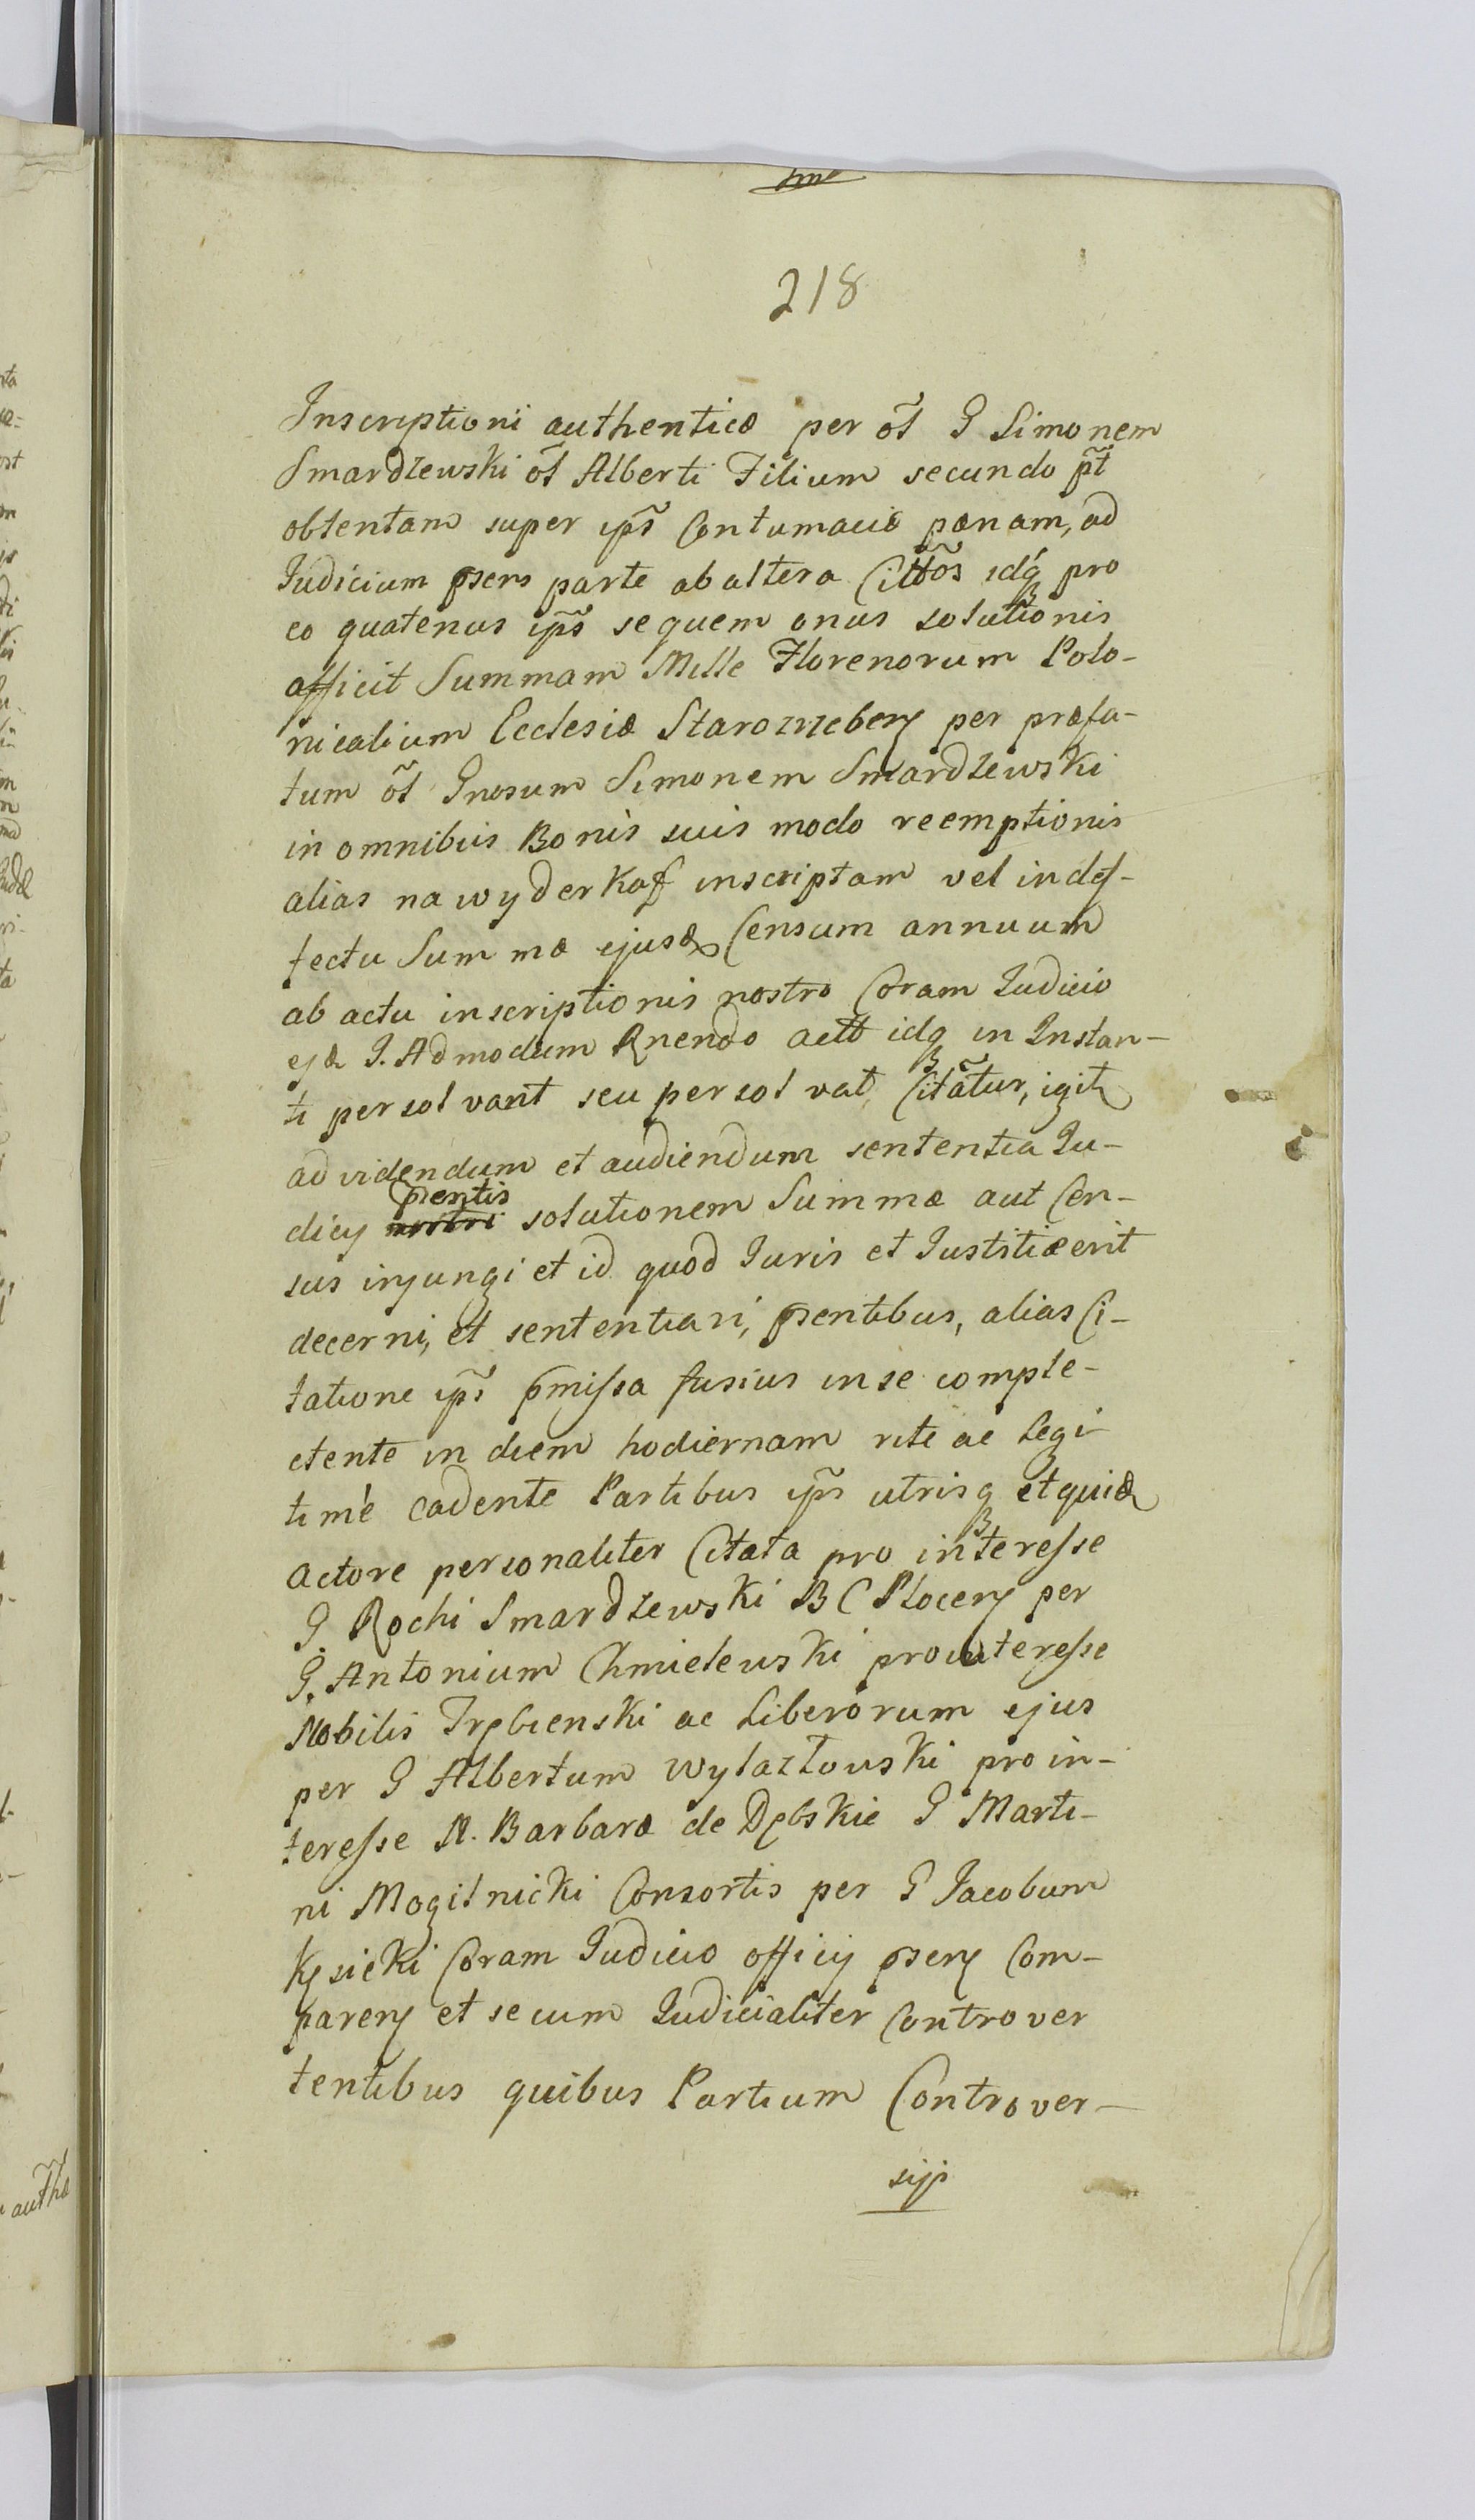 218
Inscriptioni authenticæ per oł G Simonem
Smardzewski oł Alberti Filium secundo pt̃
obtentam super ips̃ Contumaciæ pænam, ad
Judicium psens parte ab altera Cittõs idq́ pro
eo quatenus ips̃ se quem onus solutionis
afficit Summam Mille Florenorum Polo-
nicalium Ecclesiæ Starozrzebeny per præfa-
tum oł Gnosum Simonem Smardzewski
in omnibus Bonis suis modo reemptionis
alias na wyderkaf inscriptam vel in def-
fectu Summæ ejusd Censum annuum
ab actu inscriptionis nostro Coram Judicio
ejd G. Admodum Rnendo actt idq in Instan-
ti persolvant seu persolvat, Citãtur, igit
ad videndum et audiendum sententia Ju-
dicy psentis solutionem Summæ aut Cen-
sus injungi et id quod Juris et Justitiæ erit
decerni, et sententiari, psentibus, alias Ci-
tatione ips̃ pmissa fusius in se comple-
ctente in diem hodiernam rite ac legi-
timè cadente Partibus ips̃ utrisq et quid
actore personaliter Citata pro interesse
G. Rochi Smardzewski B C Ploceny per
G. Antonium Chmielewski pro interesse
Nobilis Trębienski ac Liberorum ejus
per G Albertum Wylazłowski pro in-
teresse N. Barbaræ de Dębskie G Marti-
ni Mogilnicki Consortis per G Jacobum
Kęsicki Coram Judicio officij pseny Com-
pareny et secum Judicialiter Controver
tentibus quibus Partium Controver-
sijs